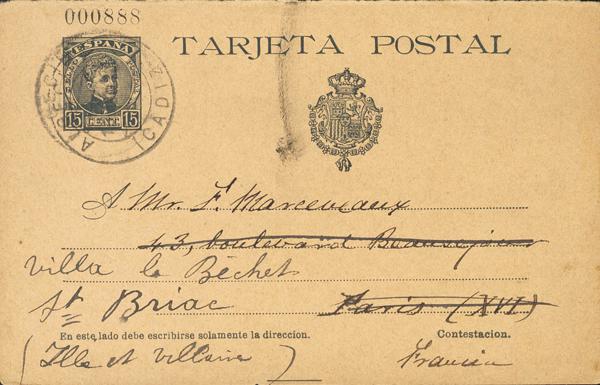 000888
ESPAÑA
15 CENT. 15
CADIZ
TARJETA POSTAL
A Mr. F. Marceveaux
43, boulevard Beauséjour
villa le Béchet
St Briac
Paris (XVI)
En este lado debe escribirse solamente la dirección.
Contestacion.
(Ille et Villaine)
Francia